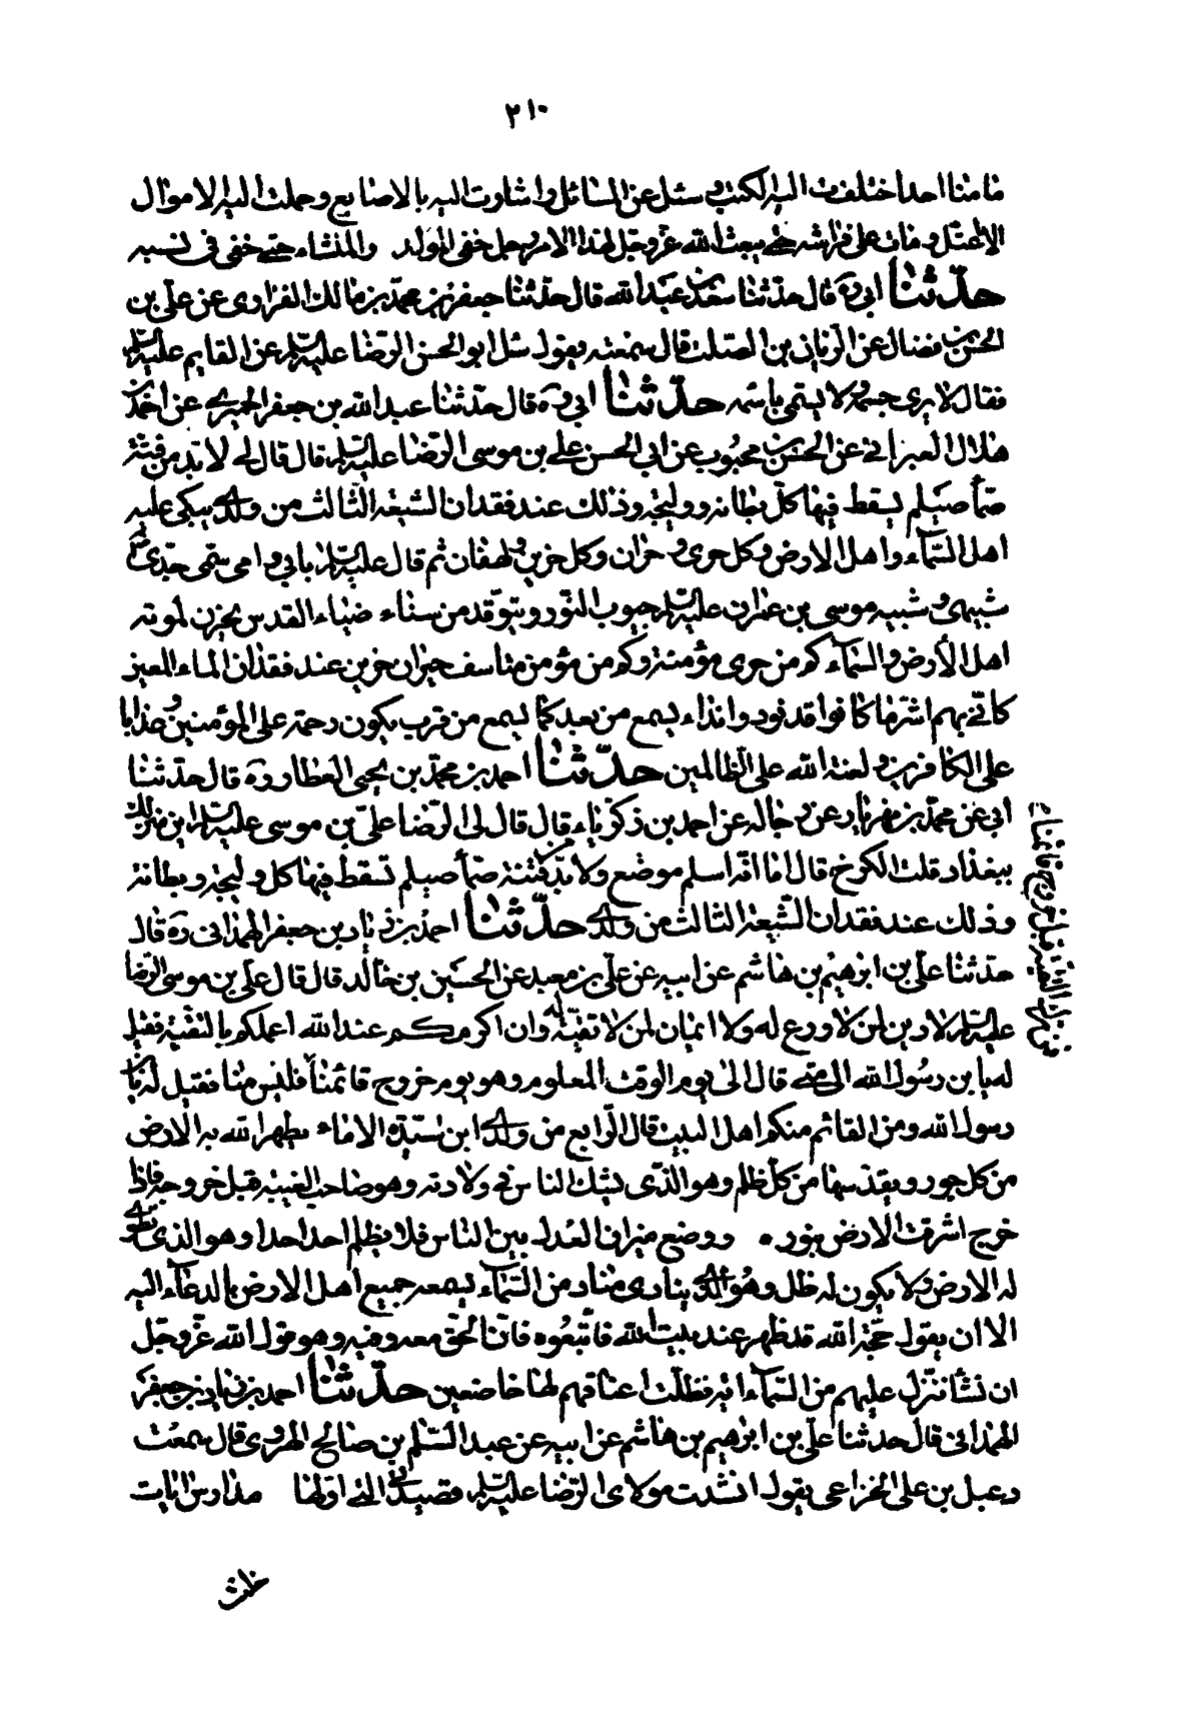 ٢١٠
مامنا احد اختلفت اليه الكتب و سئل عن المسائل و اشارت اليه بالاصابع و حملت اليه الاموال
الا اعتل و مات على فراشه حتى يبعث الله عز و جل لهذا الامر رجل خفى المولد والمنشاء حتى خفى فى نسبه
حدّثنا ابى ره قال حدّثنا سعد بن عبد الله قال حدّثنا جعفر بن محمّد بن مالك الفزارى عن على بن
الحسن بن فضال عن الريان بن الصلت قال سمعته يقول سئل ابو الحسن الرضا عليه السلم عن القايم عليه السلم
فقال لا يرى جسمه و لا يسمى باسمه حدّثنا ابى ره قال حدّثنا عبد الله بن جعفر الحميرى عن احمد بن
هلال العبرتائى عن الحسن بن محبوب عن ابى الحسن على بن موسى الرضا عليه السلم قال قال لى لا بد من فتنة
صمّاء صيلم يسقط فيها كلّ بطانه و وليجه و ذلك عند فقدان الشيعه الثالث من ولدى يبكى عليه
اهل السّمآء و اهل الارض و كل حرى و حران و كل حزين و لهفان ثم قال عليه السلم بابى و امى سمى جدّى
شبيهى و شبيه موسى بن عمران عليه السلم جيوب النور و يتوقد من سناء ضياء القدس يحزن لموته
اهل الأرض و السّمآء كم من حرى مؤمنة و كم من مؤمن متاسف حيران حزين عند فقدان الماء المعين
كانّى بهم اشرّ ما كانوا قد نودوا نداء يسمع من بعد كما يسمع من قرب يكون رحمة على المؤمنين و عذابا
على الكافرين و لعنة الله على الظالمين حدّثنا احمد بن محمّد بن يحيى العطار ره قال حدّثنا
ابى عن محمّد بن مهزيار عن خاله عن احمد بن زكرياء قال قال لى الرضا على بن موسى عليه السلم اين منزلك
ببغداد قلت الكرخ قال اما انه اسلم موضع و لا بد من فتنة صمّاء صيلم تسقط فيها كل وليجة و بطانة
و ذلك عند فقدان الشّيعة الثالث من ولدى حدّثنا احمد بن زياد بن جعفر الهمدانى ره قال
حدّثنا على بن ابرهيم بن هاشم عن ابيه عن على بن معبد عن الحسين بن خالد قال قال على بن موسى الرضا
عليه السلم لا دين لمن لا ورع له و لا ايمان لمن لا تقيّة له و ان اكرمكم عند الله اعملكم بالتقيّة فقيل
له يا بن رسول الله الى متى قال الى يوم الوقت المعلوم و هو يوم خروج قائمنا فمن ترك التقيّة قبل خروج قائمنا فليس منا فقيل له يا بن
رسول الله و من القائم منكم اهل البيت قال الرابع من ولدى ابن سيّدة الاماء يطهر الله به الارض
من كل جور و يقدسها من كل ظلم و هو الذى يشك الناس فى ولادته و هو صاحب الغيبه قبل خروجه فاذا
خرج اشرقت الارض بنوره و وضع ميزان العدل بين الناس فلا يظلم احد احدا و هو الذى تطوى
له الارض و لا يكون له ظل و هو الّذى ينادى مناد من السّمآء يسمعه جميع اهل الارض بالدعآء اليه
الا ان يقول حجّة الله قد ظهر عند بيت الله فاتّبعوه فانّ الحقّ معه و فيه و هو قول الله عزّ و جلّ
ان نشأ ننزل عليهم من السّمآء اية فظلّت اعناقهم لها خاضعين حدّثنا احمد بن زياد بن جعفر
الهمدانى قال حدثنا على بن ابرهيم بن هاشم عن ابيه عن عبد السّلم بن صالح الهروى قال سمعت
دعبل بن على الخزاعى يقول انشدت مولاى الرضا عليه السلم قصيدتى التى اولها مدارس ايات
خلت